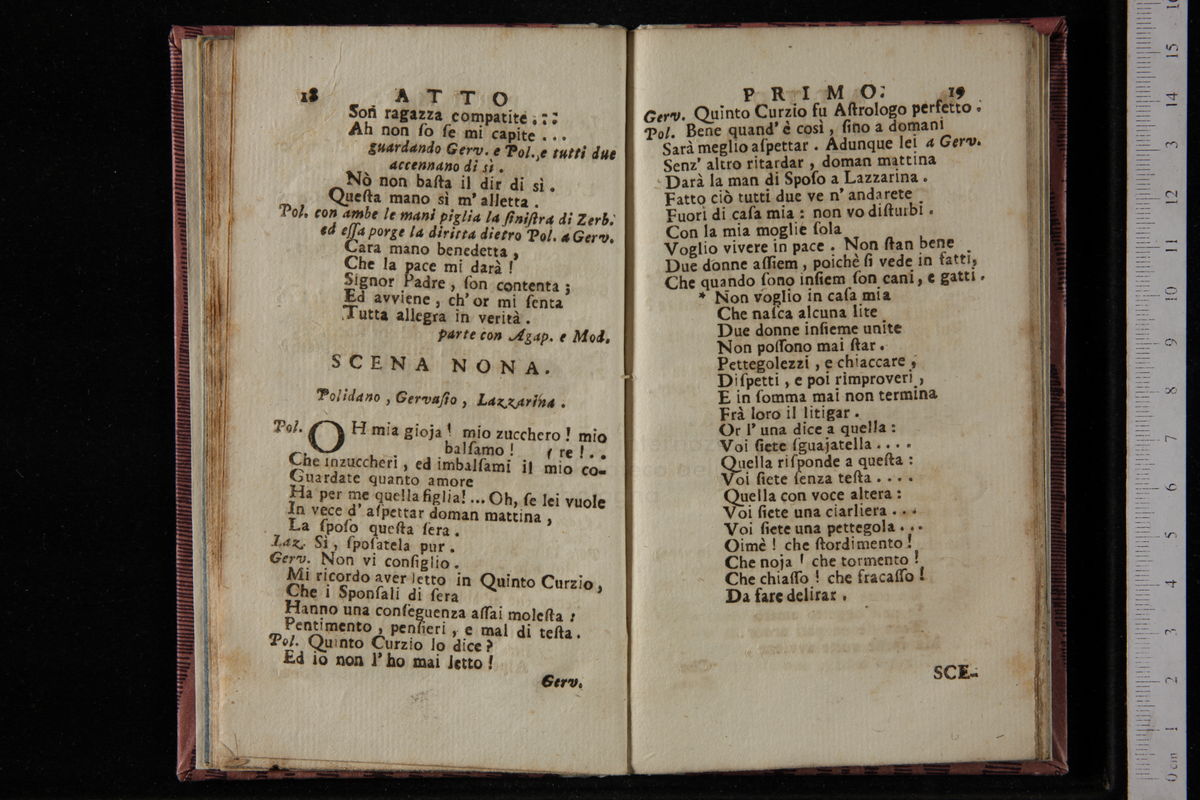 18 ATTO
Son ragazza compatite . : :
Ah non ſo ſe mi capite . . .
guardando Gerv. e Pol., e tutti due
accennano di si .
Nò non baſta il dir di sì .
Queſta mano sì m' alletta .
Pol. con ambe le mani piglia la ſiniſtra di Zerb.
ed eſſa porge la diritta dietro Pol. a Gerv.
Cara mano benedetta ,
Che la pace mi darà !
Signor Padre , ſon contenta ;
Ed avviene , ch' or mi ſenta
Tutta allegra in verità .
parte con Agap. e Mod.
SCENA NONA.
Polidano , Gervaſio , Lazzarina .
Pol. OH mia gioja ! mio zucchero ! mio
balſamo ! ( re ! . .
Che inzuccheri , ed imbalſami il mio co-
Guardate quanto amore
Ha per me quella figlia! ... Oh, ſe lei vuole
In vece d' aſpettar doman mattina ,
La ſpoſo queſta ſera .
Laz. Sì , ſpoſatela pur .
Gerv. Non vi conſiglio .
Mi ricordo aver letto in Quinto Curzio ,
Che i Sponſali di ſera
Hanno una conſeguenza aſſai moleſta :
Pentimento , penſieri , e mal di teſta .
Pol. Quinto Curzio lo dice ?
Ed io non l' ho mai letto !
Gerv.
PRIMO. 19
Gerv. Quinto Curzio fu Aſtrologo perfetto .
Pol. Bene quand' è così , ſino a domani
Sarà meglio aſpettar . Adunque lei a Gerv.
Senz' altro ritardar , doman mattina
Darà la man di Spoſo a Lazzarina .
Fatto ciò tutti due ve n' andarete
Fuori di caſa mia : non vo diſturbi .
Con la mia moglie ſola
Voglio vivere in pace . Non ſtan bene
Due donne aſſiem , poichè ſi vede in fatti,
Che quando ſono inſiem ſon cani , e gatti .
* Non voglio in caſa mia
Che naſca alcuna lite
Due donne inſieme unite
Non poſſono mai ſtar .
Pettegolezzi , e chiaccare ,
Diſpetti , e poi rimproveri ,
E in ſomma mai non termina
Frà loro il litigar .
Or l' una dice a quella :
Voi ſiete ſguajatella . . . .
Quella riſponde a queſta :
Voi ſiete ſenza teſta . . . .
Quella con voce altera :
Voi ſiete una ciarliera . . .
Voi ſiete una pettegola . . .
Oimè ! che ſtordimento !
Che noja ! che tormento !
Che chiaſſo ! che fracaſſo !
Da fare delirar .
SCE-